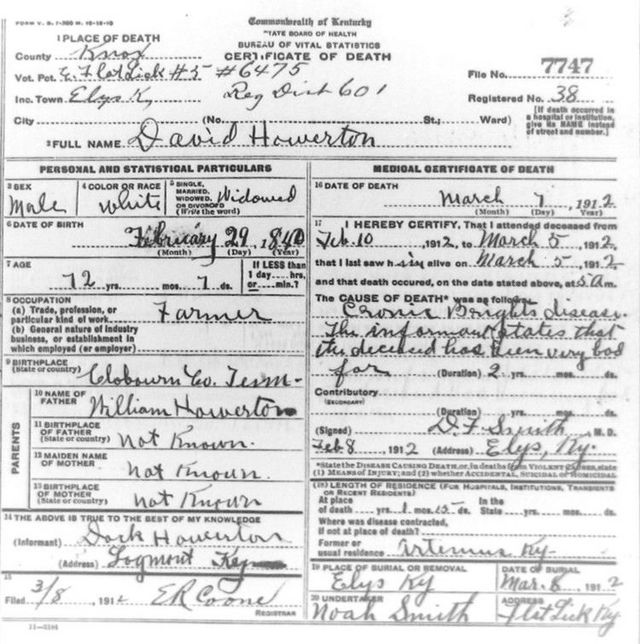 FORM V. S. 1-
Commonwealth of Kentucky
STATE BOARD OF HEALTH
BUREAU OF VITAL STATISTICS
CERTIFICATE OF DEATH
1 PLACE OF DEATH
County Knox
Vot. Pct. E. Flat Lick #5 #6475
File No. 7747
Inc. Town Elys K Reg Dist 601
Registered No. 38
City (No. St.; Ward)
[If death occurred in a hospital or institution, give its NAME instead of street and number.]
2 FULL NAME David Howerton
PERSONAL AND STATISTICAL PARTICULARS
3 SEX Male
4 COLOR OR RACE White
5 SINGLE, MARRIED, WIDOWED, OR DIVORCED (Write the word) Widowed
6 DATE OF BIRTH February 29, 1840
(Month) (Day) (Year)
7 AGE 72 yrs. mos. 7 ds.
If LESS than 1 day....hrs. or....min.?
8 OCCUPATION
(a) Trade, profession, or particular kind of work Farmer
(b) General nature of industry business, or establishment in which employed (or employer)
9 BIRTHPLACE (State or country) Clobourn Co. Tenn.
PARENTS
10 NAME OF FATHER William Howerton
11 BIRTHPLACE OF FATHER (State or country) Not Known.
12 MAIDEN NAME OF MOTHER Not Known.
13 BIRTHPLACE OF MOTHER (State or country) Not Known
14 THE ABOVE IS TRUE TO THE BEST OF MY KNOWLEDGE
(Informant) Dock Howerton
(Address) Logmont Ky
15
Filed 3/8, 1912 E R Coone
REGISTRAR
MEDICAL CERTIFICATE OF DEATH
16 DATE OF DEATH March 7, 1912
(Month) (Day) (Year)
17 I HEREBY CERTIFY, That I attended deceased from
Feb. 10 1912, to March 5 1912,
that I last saw him alive on March 5 1912
and that death occured, on the date stated above, at 5 a m.
The CAUSE OF DEATH* was as follows:
Cronic Brights disease.
The informant states that
the deceased has been very bad
for (Duration) 2 yrs. mos. ds.
Contributory
(SECONDARY)
(Duration) yrs. mos. ds.
(Signed) D. F. Smith, M. D.
Feb 8 1912 (Address) Elys, Ky.
*State the DISEASE CAUSING DEATH, or, in deaths from VIOLENT CAUSES, state (1) MEANS OF INJURY; and (2) whether ACCIDENTAL, SUICIDAL or HOMICIDAL
18 LENGTH OF RESIDENCE (FOR HOSPITALS, INSTITUTIONS, TRANSIENTS OR RECENT RESIDENTS)
At place of death yrs. 1 mos. 15 ds. In the State yrs. mos. ds.
Where was disease contracted, if not at place of death?
Former or usual residence Artemus Ky.
19 PLACE OF BURIAL OR REMOVAL Elys Ky
DATE OF BURIAL Mar. 8, 1912
20 UNDERTAKER Noah Smith
ADDRESS Flat Lick Ky
11-3184